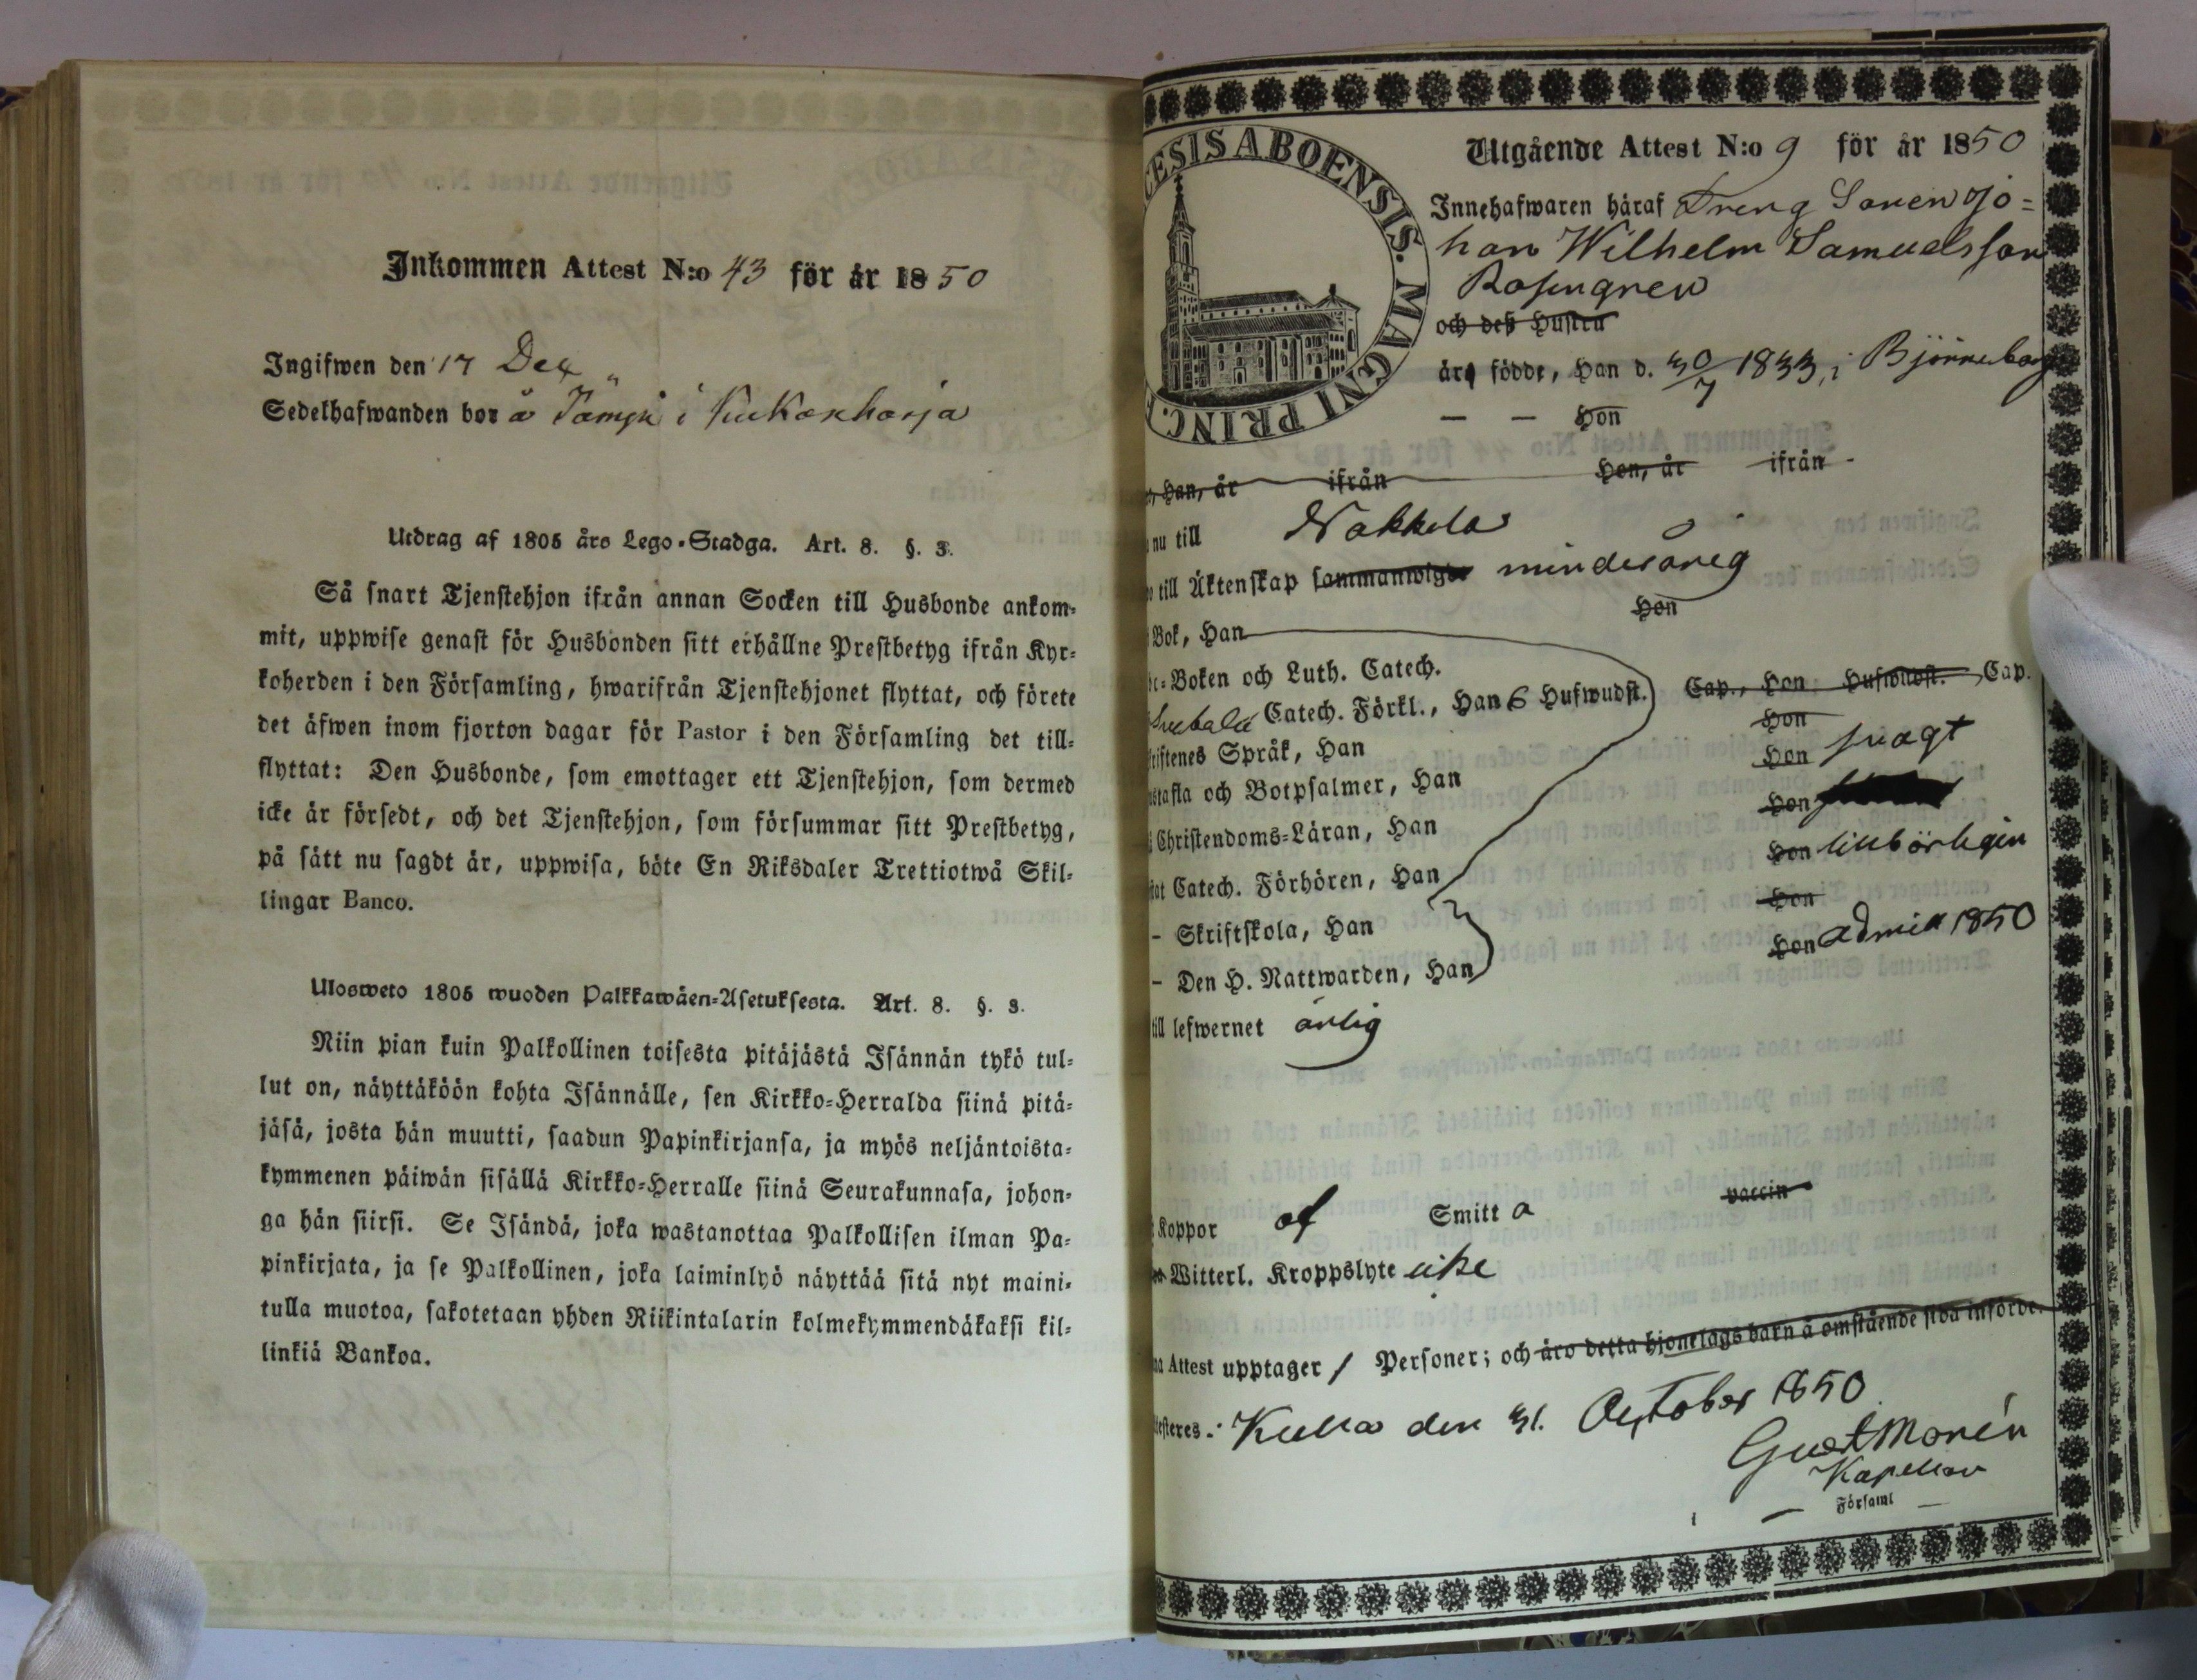 Inkommen Attest N:o 43 för år 1850
Ingifwen den 17 Dec
Sedelhafwanden bor å i Kukonharja
Utdrag af 1805 års Lego-Stadga. Art. 8. §. 3.
Så snart Tjenstehjon ifrån annan Socken till Husbonde ankom-
mit, uppwise genast för Husbonden sitt erhållne Prestbetyg ifrån Kyr-
koherden i den Församling, hwarifrån Tjenstehjonet flyttat, och förete
det äfwen inom fjorton dagar för Pastor i den Församling det till-
flyttat: Den Husbonde, som emottager ett Tjenstehjon, som dermed
icke är försedt, och det Tjenstehjon, som försummar sitt Prestbetyg,
på sätt nu sagdt är, uppwisa, böte En Riksdaler Trettiotwå Skil-
lingar Banco.
Ulosweto 1805 wuoden Palkkawäen-Asetuksesta. Art. 8. §. 3.
Niin pian kuin Palkollinen toisesta pitäjästä Isännän tykö tul-
lut on, näyttäköön kohta Isännälle, sen Kirkko-Herralda siinä pitä-
jäsä, josta hän muutti, saadun Papinkirjansa, ja myös neljäntoista-
kymmenen päiwän sisällä Kirkko-Herralle siinä Seurakunnasa, johon-
ga hän siirsi. Se Isändä, joka wastanottaa Palkollisen ilman Pa-
pinkirjata, ja se Palkollinen, joka laiminlyö näyttää sitä nyt maini-
tulla muotoa, sakotetaan yhden Riikintalarin kolmekymmendäkaksi kil-
linkiä Bankoa.
CESIS ABOENSIS. MAGNI PRINC.
Utgående Attest N:o 9 för år 1850
Innehafwaren häraf Dreng Sonen Jo=
han Wilhelm Samuelsson
Rosengren
och deß Hustru
äro födde, Han d. 30/7 1833, i Björneborg
— — Hon
Han, år ifrån Hon, år ifrån
nu till Nakkila
till Äktenskap sammanwigde minderårig
Hon
Bok, Han
Boken och Luth. Catech.
Svebelii Catech. Förkl., Han 6 Hufwudst. Cap., Hon Hufwudst. Cap.
Hon
riftenes Språk, Han Hon svagt
stafla och Botpsalmer, Han Hon
Christendoms-Läran, Han Hon tillbörligen
Catech. Förhören, Han Hon
– Skriftskola, Han
– Den H. Nattwarden, Han Hon admitt 1850
till lefwernet ärlig
Koppor af Smitta vaccin
Witterl. Kroppslyte icke
Attest upptager 1 Personer; och äro detta hjonelags barn å omstående sida införde.
esteres. Kulla den 31. October 1850
Gust Morén
Kapellan
— Församl —